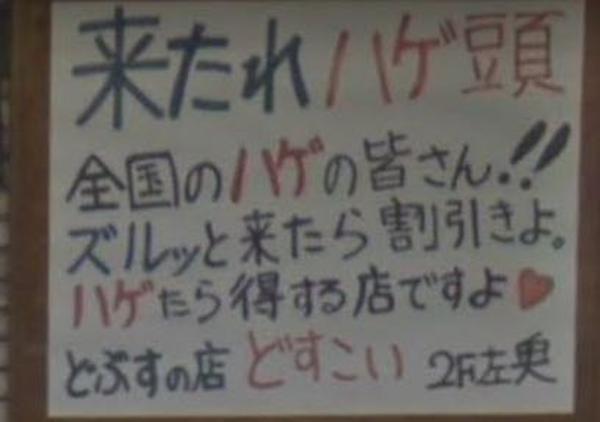 来たれハゲ頭
全国のハゲの皆さん.!!
ズルッと来たら割引きよ。
ハゲたら得する店ですよ♥
どぶすの店 どすこい 2F左奥